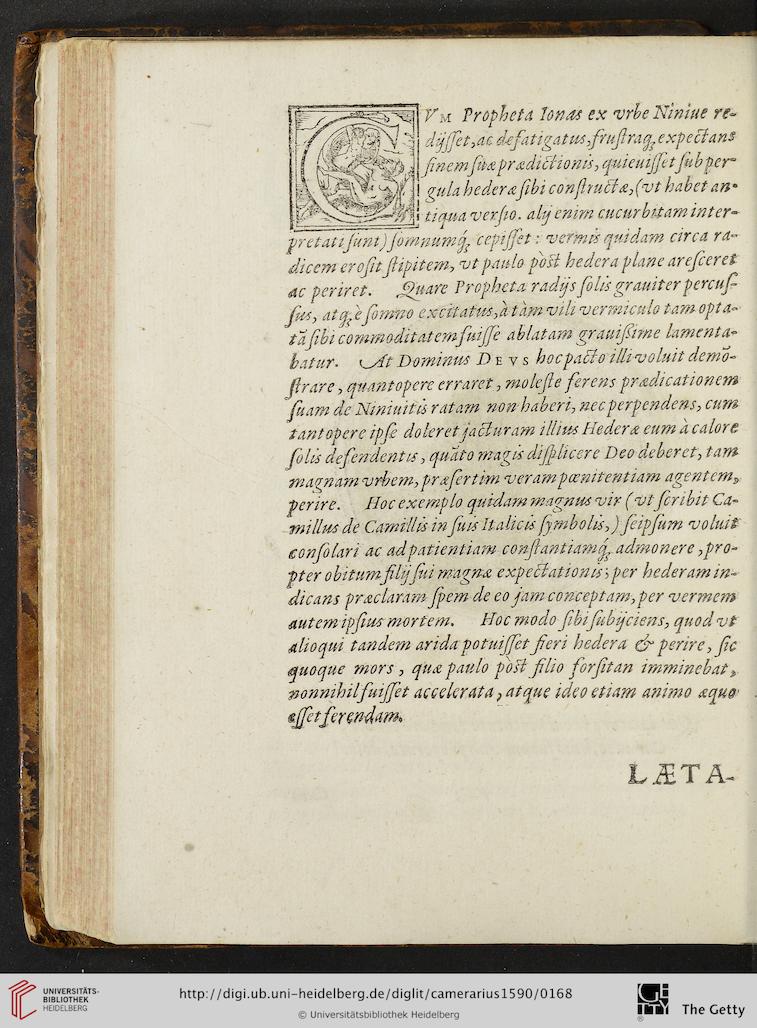 CVM Propheta Ionas ex vrbe Niniue re-
dijſſet, ac defatigatus, fruſtraq́; expectans
finem ſuæ prædictionis, quieuiſſet ſub per-
gula hederæ ſibi conſtructæ, (vt habet an-
tiqua verſio. alij enim cucurbitam inter-
pretati ſunt) ſomnumq́; cepiſſet : vermis quidam circa ra-
dicem eroſit ſtipitem, vt paulo pòſt hedera plane areſceret
ac periret. Quare Propheta radijs ſolis grauiter percuſ-
ſus, atq; è ſomno excitatus, à tàm vili vermiculo tam opta-
tã ſibi commoditatem fuiſſe ablatam grauißime lamenta-
batur. At Dominus DEVS hoc pacto illi voluit demõ-
ſtrare, quantopere erraret, moleſte ferens prædicationem
ſuam de Niniuitis ratam non haberi, nec perpendens, cum
tantopere ipſe doleret jacturam illius Hederæ eum à calore
ſolis defendentis, quãto magis diſplicere Deo deberet, tam
magnam vrbem, præſertim veram pœnitentiam agentem,
perire. Hoc exemplo quidam magnus vir (vt ſcribit Ca-
millus de Camillis in ſuis Italicis ſymbolis,) ſeipſum voluit
conſolari ac ad patientiam conſtantiamq́; admonere, pro-
pter obitum filij ſui magnæ expectationis; per hederam in-
dicans præclaram ſpem de eo jam conceptam, per vermem
autem ipſius mortem. Hoc modo ſibi ſubijciens, quod vt
alioqui tandem arida potuiſſet fieri hedera & perire, ſic
quoque mors, quæ paulo pòſt filio forſitan imminebat,
nonnihil fuiſſet accelerata, atque ideo etiam animo æquo
eſſet ferendam.
LÆTA-
UNIVERSITÄTS-
BIBLIOTHEK
HEIDELBERG
http://digi.ub.uni-heidelberg.de/diglit/camerarius1590/0168
© Universitätsbibliothek Heidelberg
The Getty